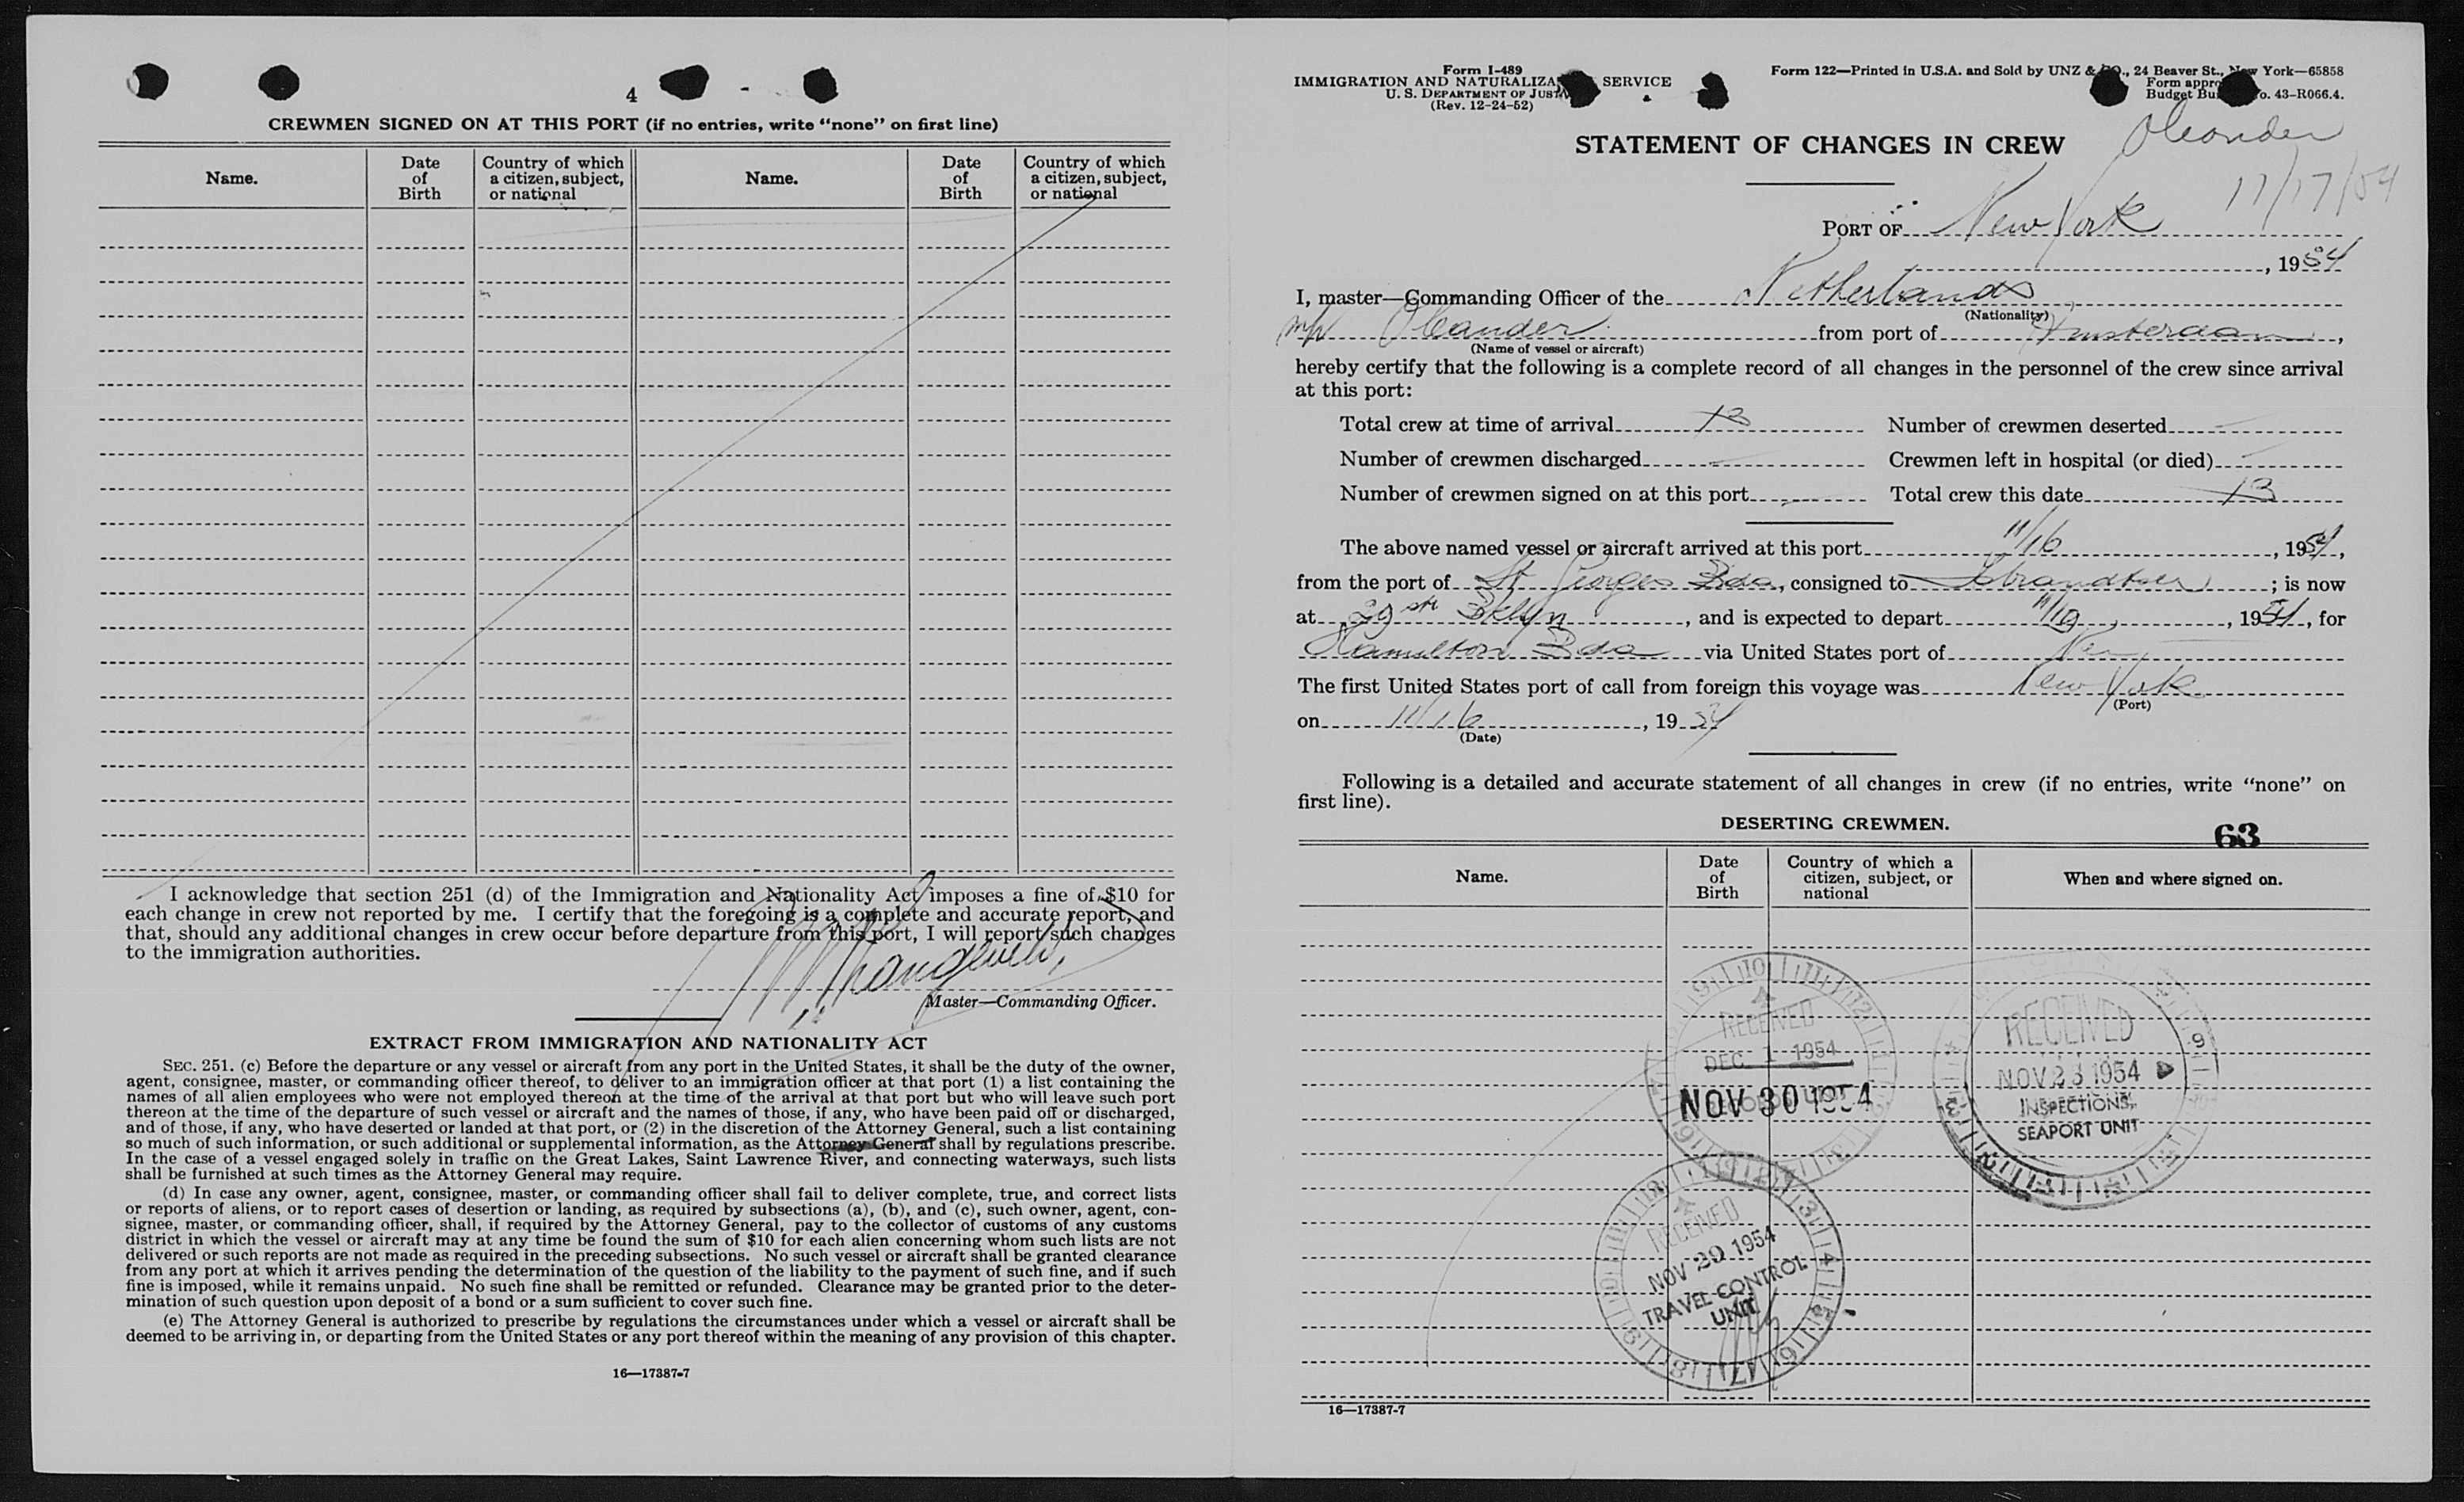 4
CREWMEN SIGNED ON AT THIS PORT (if no entries, write “none” on first line)
Name. Date of Birth Country of which a citizen, subject, or national Name. Date of Birth Country of which a citizen, subject, or national
I acknowledge that section 251 (d) of the Immigration and Nationality Act imposes a fine of $10 for
each change in crew not reported by me. I certify that the foregoing is a complete and accurate report, and
that, should any additional changes in crew occur before departure from this port, I will report such changes
to the immigration authorities.
Master—Commanding Officer.
EXTRACT FROM IMMIGRATION AND NATIONALITY ACT
SEC. 251. (c) Before the departure or any vessel or aircraft from any port in the United States, it shall be the duty of the owner,
agent, consignee, master, or commanding officer thereof, to deliver to an immigration officer at that port (1) a list containing the
names of all alien employees who were not employed thereon at the time of the arrival at that port but who will leave such port
thereon at the time of the departure of such vessel or aircraft and the names of those, if any, who have been paid off or discharged,
and of those, if any, who have deserted or landed at that port, or (2) in the discretion of the Attorney General, such a list containing
so much of such information, or such additional or supplemental information, as the Attorney General shall by regulations prescribe.
In the case of a vessel engaged solely in traffic on the Great Lakes, Saint Lawrence River, and connecting waterways, such lists
shall be furnished at such times as the Attorney General may require.
(d) In case any owner, agent, consignee, master, or commanding officer shall fail to deliver complete, true, and correct lists
or reports of aliens, or to report cases of desertion or landing, as required by subsections (a), (b), and (c), such owner, agent, con-
signee, master, or commanding officer, shall, if required by the Attorney General, pay to the collector of customs of any customs
district in which the vessel or aircraft may at any time be found the sum of $10 for each alien concerning whom such lists are not
delivered or such reports are not made as required in the preceding subsections. No such vessel or aircraft shall be granted clearance
from any port at which it arrives pending the determination of the question of the liability to the payment of such fine, and if such
fine is imposed, while it remains unpaid. No such fine shall be remitted or refunded. Clearance may be granted prior to the deter-
mination of such question upon deposit of a bond or a sum sufficient to cover such fine.
(e) The Attorney General is authorized to prescribe by regulations the circumstances under which a vessel or aircraft shall be
deemed to be arriving in, or departing from the United States or any port thereof within the meaning of any provision of this chapter.
16—17387-7
Form I-489
IMMIGRATION AND NATURALIZA SERVICE
U. S. DEPARTMENT OF JUST
(Rev. 12-24-52)
Form 122—Printed in U.S.A. and Sold by UNZ & ., 24 Beaver St., New York—65858
Form appro
Budget Bu o. 43-R066.4.
Oleander
11/17/54
STATEMENT OF CHANGES IN CREW
PORT OF New York
, 1954
I, master—Commanding Officer of the Netherlands
(Nationality)
m/v Oleander from port of Amsterdam,
(Name of vessel or aircraft)
hereby certify that the following is a complete record of all changes in the personnel of the crew since arrival
at this port:
Total crew at time of arrival 13 Number of crewmen deserted -
Number of crewmen discharged - Crewmen left in hospital (or died) -
Number of crewmen signed on at this port - Total crew this date 13
The above named vessel or aircraft arrived at this port 11/16, 1954,
from the port of St Georges Bda, consigned to ; is now
at 29 st Bklyn, and is expected to depart 11/19, 1954, for
Hamilton Bda via United States port of
The first United States port of call from foreign this voyage was New York
(Port)
on 11/16, 1954
(Date)
Following is a detailed and accurate statement of all changes in crew (if no entries, write “none” on
first line).
DESERTING CREWMEN.
63
Name. Date of Birth Country of which a citizen, subject, or national When and where signed on.
RECEIVED
DEC 1 1954
NOV 30 1954
RECEIVED
NOV 23 1954
INSPECTIONS,
SEAPORT UNIT
RECEIVED
NOV 30 1954
TRAVEL CONTROL
UNIT
16—17387-7